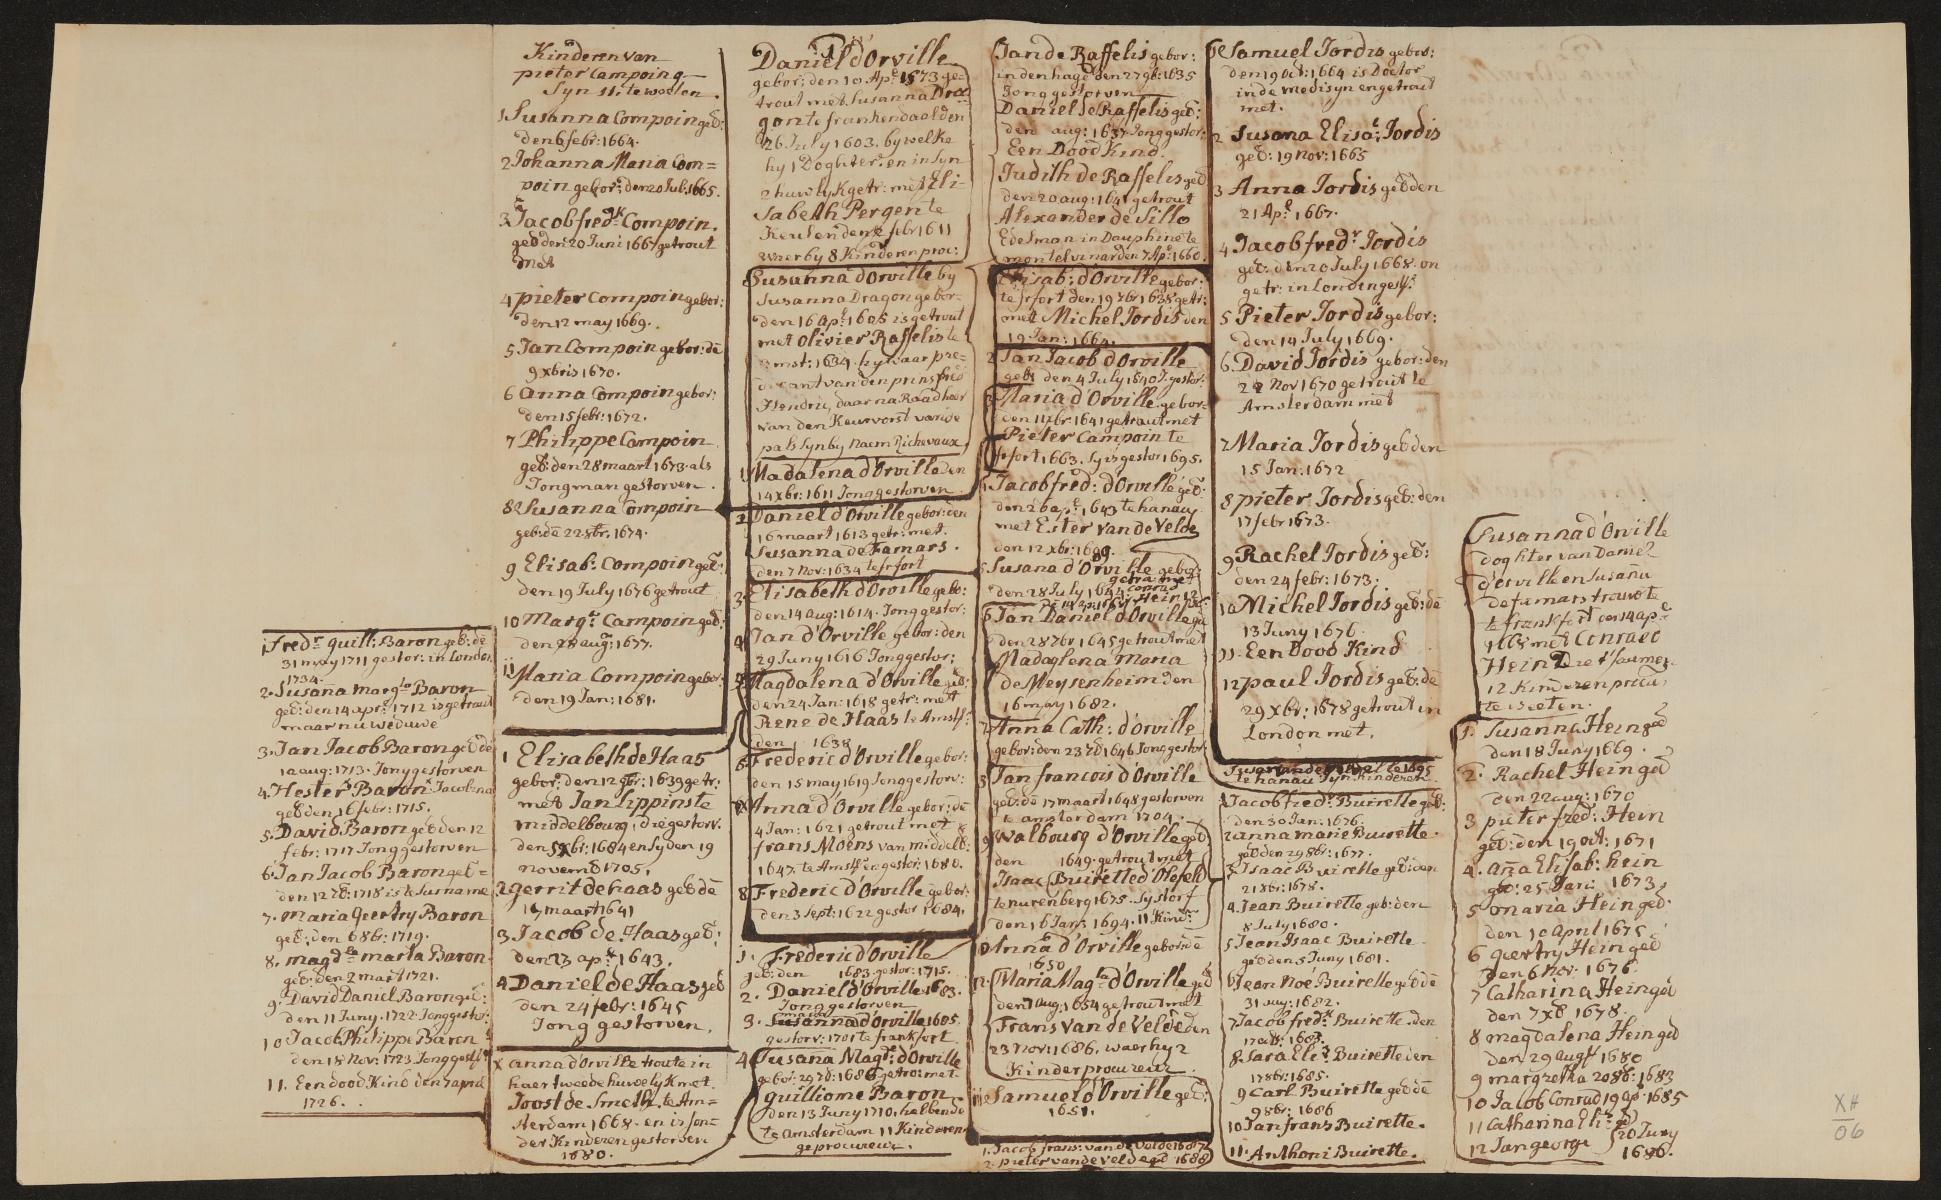 Kinderen van
pieter Campoing
Syn 11. te weeten.
1 Susanna Compoin geb:
den 6 febr: 1664.
2 Johanna Maria Com=
poin gebor: den 20 Jul: 1665.
3 Jacob fredk Compoin.
geb den 20 Juni 1667 getrout
met
4 pieter Compoin gebor:
den 12 may 1669.
5 Jan Compoin gebor: de
9 xbris 1670.
6 anna Compoin gebor:
den 15 febr: 1672.
7 Philippe Compoin
geb: den 28 maart 1673. als
Jongman gestorven.
8 Susanna Compoin
geb: de 22 8br: 1674.
9 Elisab: Compoin geb:
den 19 July 1676 getrout
10 Margt Campoin geb:
den 28 aug: 1677.
11 Maria Compoin gebor:
den 19 Jan: 1681.
1 Fredr guill: Baron geb: de
31 may 1711 gestor: in London
1734.
2. Susana margta Baron
geb: den 14 apr: 1712 is getrout
maar nu weduwe
3. Jan Jacob Baron geb de
10 aug: 1713. Jong gestorven
4. Hester Baron Jacobina
geb den 16 febr: 1715.
5. David Baron geb den 12
febr: 1717 Jong gestorven
6. Jan Jacob Baron geb=
den 12 1718 is Suriname
7. Maria Geertry Baron
geb: den 6 8br: 1719.
8. magdla marta Baron
geb: den 2 mart 1721.
9. David Daniel Baron geb:
den 11 Juny 1722. Jong gestor:
10 Jacob Philippe Baron
den 18 Nov: 1723 Jong gest:
11. Een dood Kind den 7 april
1726.
1 Elisabeth de Haas
gebor: den 12 9br: 1639 getr:
met Jan Lippins te
middelbourg, die gestorv.
den 5 xbr: 1684 en sy den 19
novemb 1705.
2 gerrit de haas geb de
17 maart 1641
3 Jacob de Haas geb:
den 23 apr. 1643.
4 Daniel de Haas geb
den 24 febr: 1645
Jong gestorven.
x anna d'orville troute in
haer tweede huwelyk met
Joost de Smeth te Am=
sterdam 1668. en is son=
der Kinderen gestorven
1680.
1
Daniel d'Orville
gebor: den 10. Apr 1573 ge=
trout met Susanna Dra=
gon te frankendaal den
26 July 1603. by welke
hy 1 Doghter. en in syn
2 huwlyk getr: met Eli=
sabeth Pergens te
Keulen den 2 febr 1611
waer by 8 Kinderen proc:
Susanna d'Orville by
Susanna Dragon gebor=
den 16 Apl 1605 is getrout
met Olivier Raffelis te
Amst: 1634. hy waar pre=
dicant van den prins fred
Hendric, daar na Raadheer
van den Keurvorst van de
pals syn by naem Richevaux
1 Madalena d'Orville den
14 xbr: 1611 Jong gestorven
2 Daniel d'Orville gebor: den
16 maart 1613 getr: met.
Susanna de Famars.
den 7 Nov: 1634 te frfort
3. Elisabeth d'Orville gebo:
den 14 aug: 1614. Jong gestor:
4 Jan d'Orville gebor: den
29 Juny 1616 Jong gestor:
5 Magdalena d'Orville geb:
den 24 Jan: 1618 getr: met
Rene de Haas te Amst:
den 1638
6 Frederic d'Orville gebor:
den 15 may 1619 Jong gestorv:
7x Anna d'Orville gebor: de
4 Jan: 1621 getrout met
frans Moens van middelb:
1647. te Amst: en gestor: 1680.
8 Frederic d'Orville gebor:
den 3 Sept: 1622 gestor 1684.
1. Frederic d'Orville
geb: den 1683. gestor: 1715.
2. Daniel d'Orville 1683.
Jong gestorven
maria
3. Susanna d'Orville 1685
gestorv: 1701 te frankfort
4 Susana Magt: d'Orville
gebor: 29 1686 getro: met
guilliome Baron
den 13 Juny 1710, hebbende
te Amsterdam 11 Kinderen
geprocureur.
Jan de Raffelis gebor:
in den hage den 27 9b: 1635
Jong gestorven
Daniel de Raffelis geb:
den aug: 1637 Jong gestor:
Een Dood Kind.
Judith de Raffelis geb
den 20 aug: 1641 getrout
Alexander de Sillo
Edelman in Dauphine te
montelimar den 7 Ap: 1660
Elisab: d'Orville gebor:
te frfort den 19 7br 1638 getr:
met Michel Jordis den
19 Jan: 1664.
2 Jan Jacob d'Orville
geb: den 4 July 1640 J. gestor:
3 Maria d'Orville gebor=
den 11 xbr: 1641 getrout met
Pieter Campoin te
frfort 1663. Sy is gestor 1695.
4 Jacob fred: d'Orville geb:
den 26 ap: 1643 te hanau
met Ester van de Velde
den 12 xbr: 1689.
5 Susana d'Orville gebor
den 28 July 1644 getra: met
Conrad Hein 12
6 Jan Daniel d'Orville geb
den 28 7br 1645 getrout met
Madaglena Maria
de Meysenheim den
16 may 1682.
7 Anna Cath: d'Orville
gebor: den 23 1646 Jong gestor
8 Jan francois d'Orville
geb: de 17 maart 1648 gestorven
te amsterdam 1704.
9 Walbourg d'Orville geb
den 1649. getrout met
Isaac Buirette d'Olefeld
te nurenberg 1675. Sy storf
den 16 Jan: 1694. 11 Kindr
10 Anna d'Orville gebor: de
1650
12. Maria Magla d'Orville geb
den 7 aug: 1654 getrout met
Frans van de Velde den
23 Nov: 1686, waer hy 2
Kinder procureur.
11 Samuel d'Orville geb:
1651.
1. Jacob frans: van de Velde 1687
2. Pieter van de Velde geb 1688
1 Samuel Jordis gebor:
den 19 oct: 1664 is Doctor
in de medisyn en getrout
met.
2 Susana Elisa: Jordis
geb: 19 Nov: 1665
3 Anna Jordis geb den
21 Ap: 1667.
4 Jacob fredr Jordis
geb: den 20 July 1668. on
getr: in London gest:
5 Pieter Jordis gebor:
den 14 July 1669.
6. David Jordis gebor: den
22 Nov 1670 getrout te
Amsterdam met
7 Maria Jordis geb den
15 Jan: 1672
8 Pieter Jordis geb: den
17 febr 1673.
9 Rachel Jordis geb:
den 24 febr: 1673.
10 Michel Jordis geb: de
13 Juny 1676.
11. Een Dood Kind
12 paul Jordis geb: de
29 xbr: 1678 getrout in
London met.
te hanau Syn Kinderen
1 Jacob fredr: Buirette geb:
den 30 Jan: 1676.
2 anna marie Buirette.
geb den 29 8br: 1677.
3 Isaac Buirette geb: den
21 8br: 1678.
4. Jean Buirette geb: den
8 July 1680.
5 Jean Isaac Buirette
geb den 5 Juny 1681.
6 Jean Noé Buirette geb de
31 aug: 1682.
7 Jacob fredk Buirette den
17 1683.
8. Sara Eli: Buirette den
17 8br: 1685.
9 Carl Buirette geb de
9 8br: 1686
10 Jan frans Buirette.
11. Anthoni Buirette.
Susanna d'Orville
doghter van Daniel
d'orville en Susanna
de famars troude te
frankfort den 14 ap:
met Conraet
Hein
12 Kinderen procu:
te weeten.
1. Susanna Hein geb
den 18 Juny 1669.
2. Rachel Hein geb
den 22 aug: 1670
3 pieter fred: Hein
geb: den 19 oct: 1671
4. Aña Elisab: hein
geb: 25 Jan: 1673
5 maria Hein geb:
den 10 april 1675
6 geertry Hein geb
den 6 Nov: 1676.
7 Catharina Hein geb
den 7 xb 1678.
8 magdalena Hein geb
den 29 aug 1680
9 margretha 20 8b: 1683
10 Jacob Conrad 19 ap: 1685
11 Catharina Eli: geb
12 Jan george } 20 Juny
1686.
XH
06